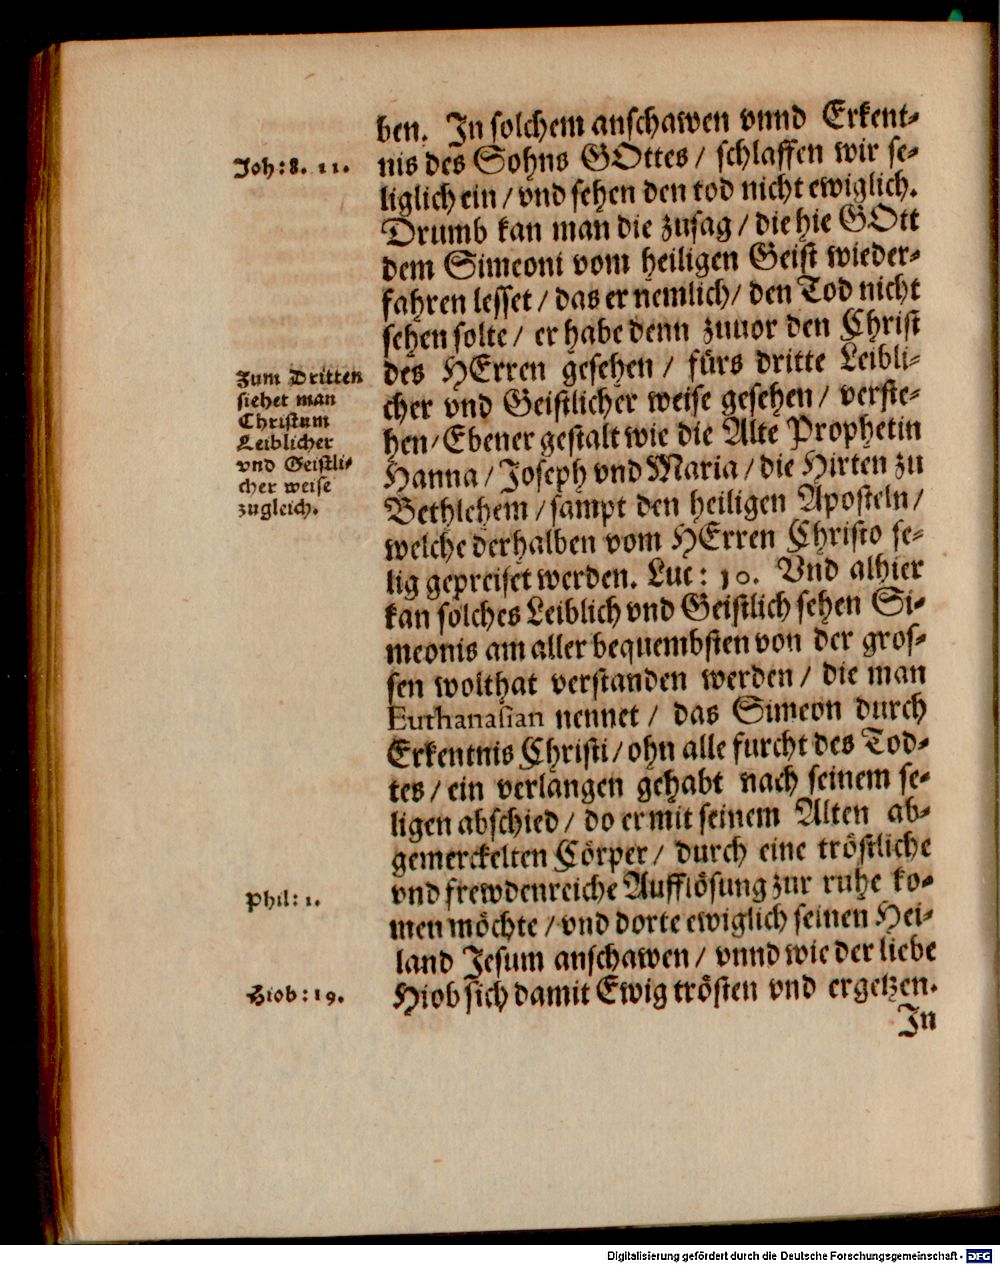 ben. In solchem anschawen vnnd Erkent-
Joh: 8. 11. nis des Sohns GOttes / schlaffen wir se-
liglich ein / vnd sehen den tod nicht ewiglich.
Drumb kan man die zusag / die hie GOtt
dem Simeoni vom heiligen Geist wieder-
fahren lesset / das er nemlich / den Tod nicht
sehen solte / er habe denn zuuor den Christ
des HErren gesehen / fürs dritte Leibli-
cher vnd Geistlicher weise gesehen / verste-
hen / Ebener gestalt wie die Alte Prophetin
Hanna / Joseph vnd Maria / die Hirten zu
Bethlehem / sampt den heiligen Aposteln /
welche derhalben vom HErren Christo se-
lig gepreiset werden. Luc: 10. Vnd alhier
kan solches Leiblich vnd Geistlich sehen Si-
meonis am aller bequembsten von der gros-
sen wolthat verstanden werden / die man
Euthanasian nennet / das Simeon durch
Erkentnis Christi / ohn alle furcht des Tod-
tes / ein verlangen gehabt nach seinem se-
ligen abschied / do er mit seinem Alten ab-
gemerckelten Cörper / durch eine tröstliche
vnd frewdenreiche Aufflösung zur ruhe ko-
men möchte / vnd dorte ewiglich seinen Hei-
land Jesum anschawen / vnnd wie der liebe
Hiob sich damit Ewig trösten vnd ergetzen.
In
Zum Dritten
siehet man
Christum
Leiblicher
vnd Geistli-
cher weise
zugleich.
Phil: 1.
Hiob: 19.
Digitalisierung gefördert durch die Deutsche Forschungsgemeinschaft - DFG